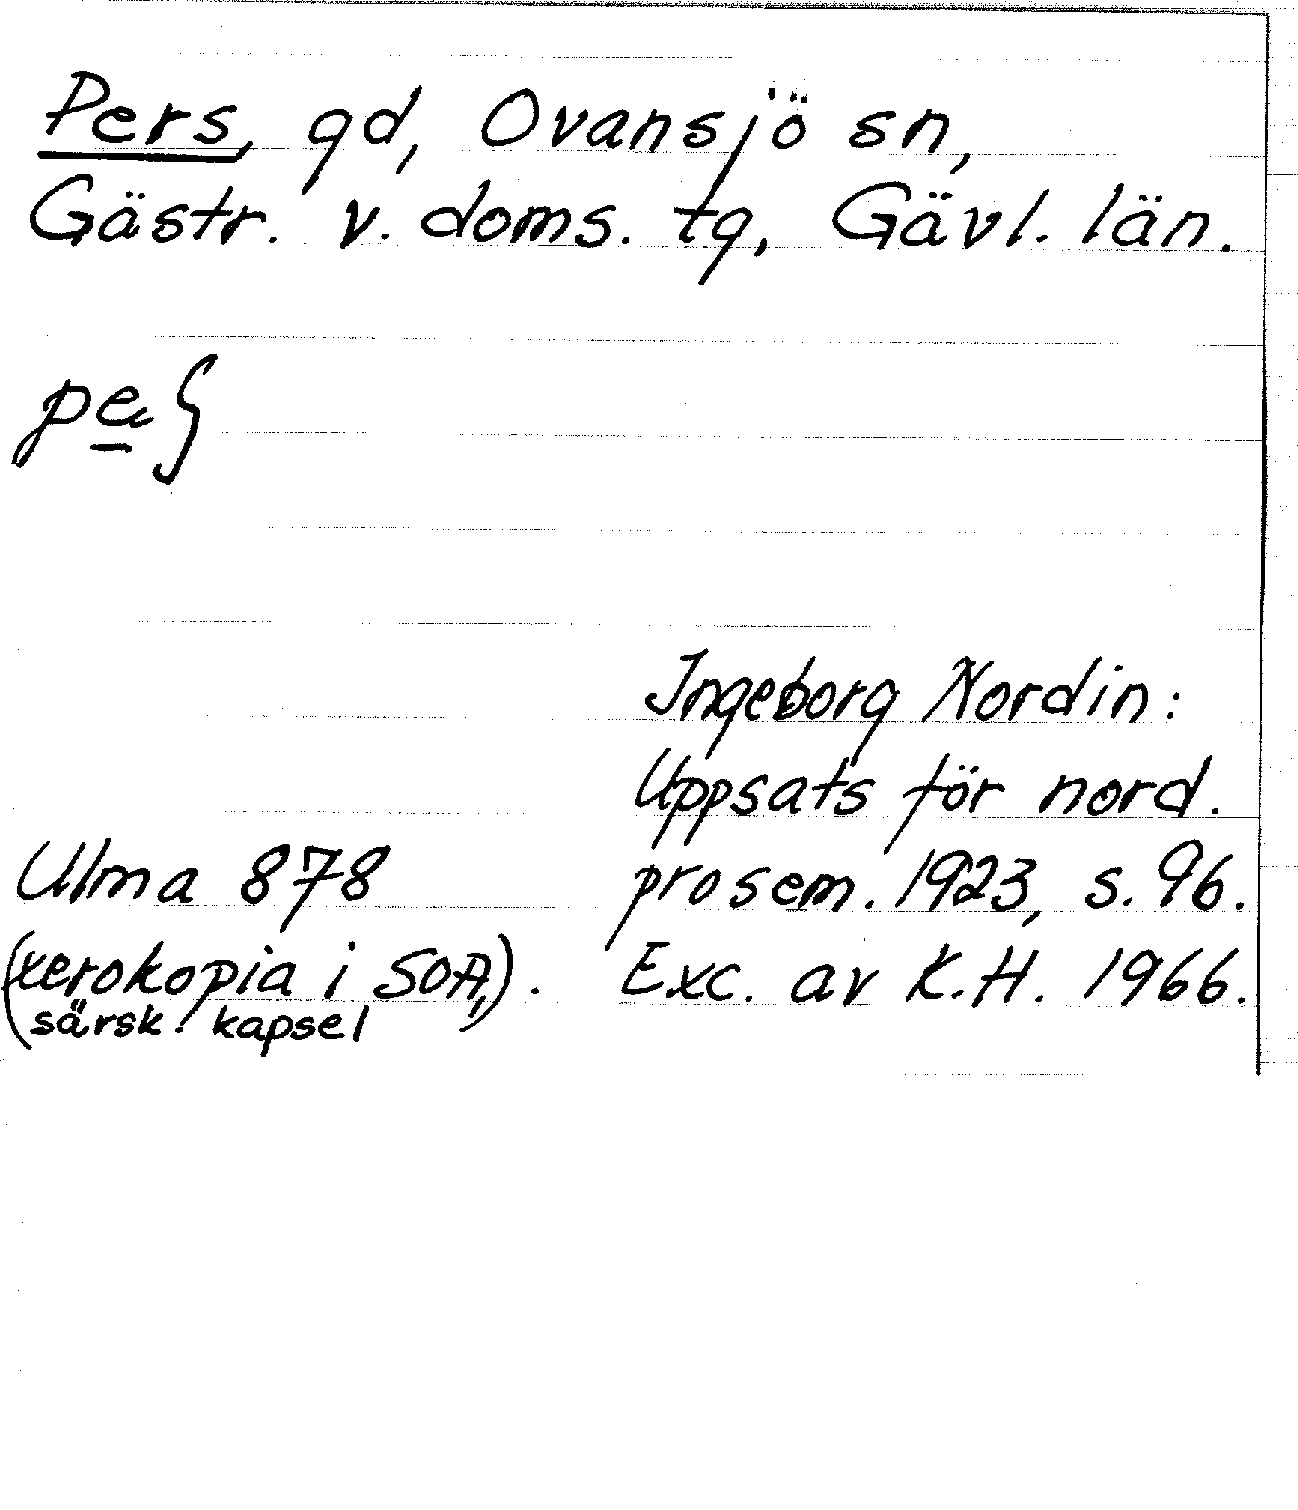 Pers, gd, Ovansjö sn,
Gästr. v. doms. tg, Gävl. län.
Ingeborg Nordin:
Uppsats för nord.
prosem. 1923, s. 96.
Exc. av K.H. 1966.
Ulma 878
(xerokopia i SOA,
särsk. kapsel).